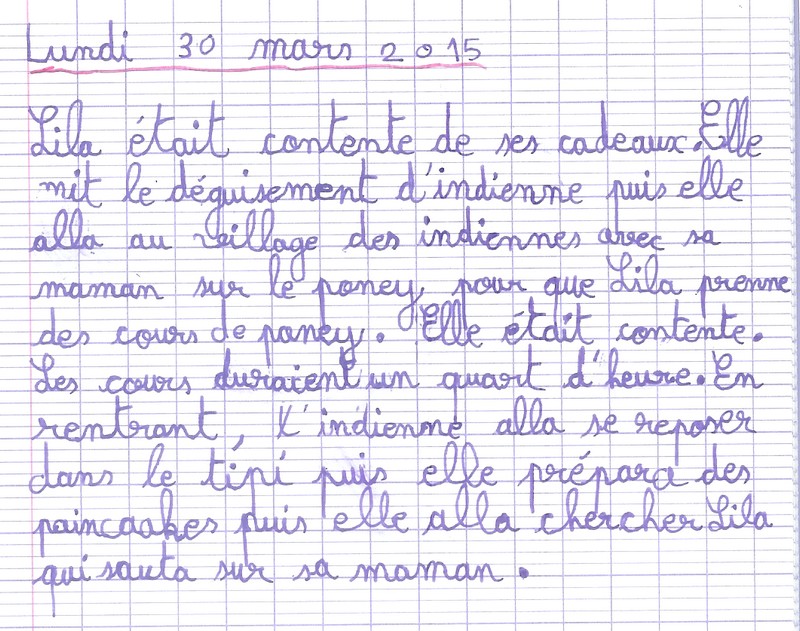 Lundi 30 mars 2015
Lila était contente de ses cadeaux. Elle
mit le déguisement d'indienne puis elle
alla au veillage des indiennes avec sa
maman sur le poney, pour que Lila prenne
des cours de poney. Elle était contente.
Les cours duraient un quart d'heure. En
rentrant, l'indienne alla se reposer
dans le tipi puis elle prépara des
paincaakes puis elle alla chercher Lila
qui sauta sur sa maman.